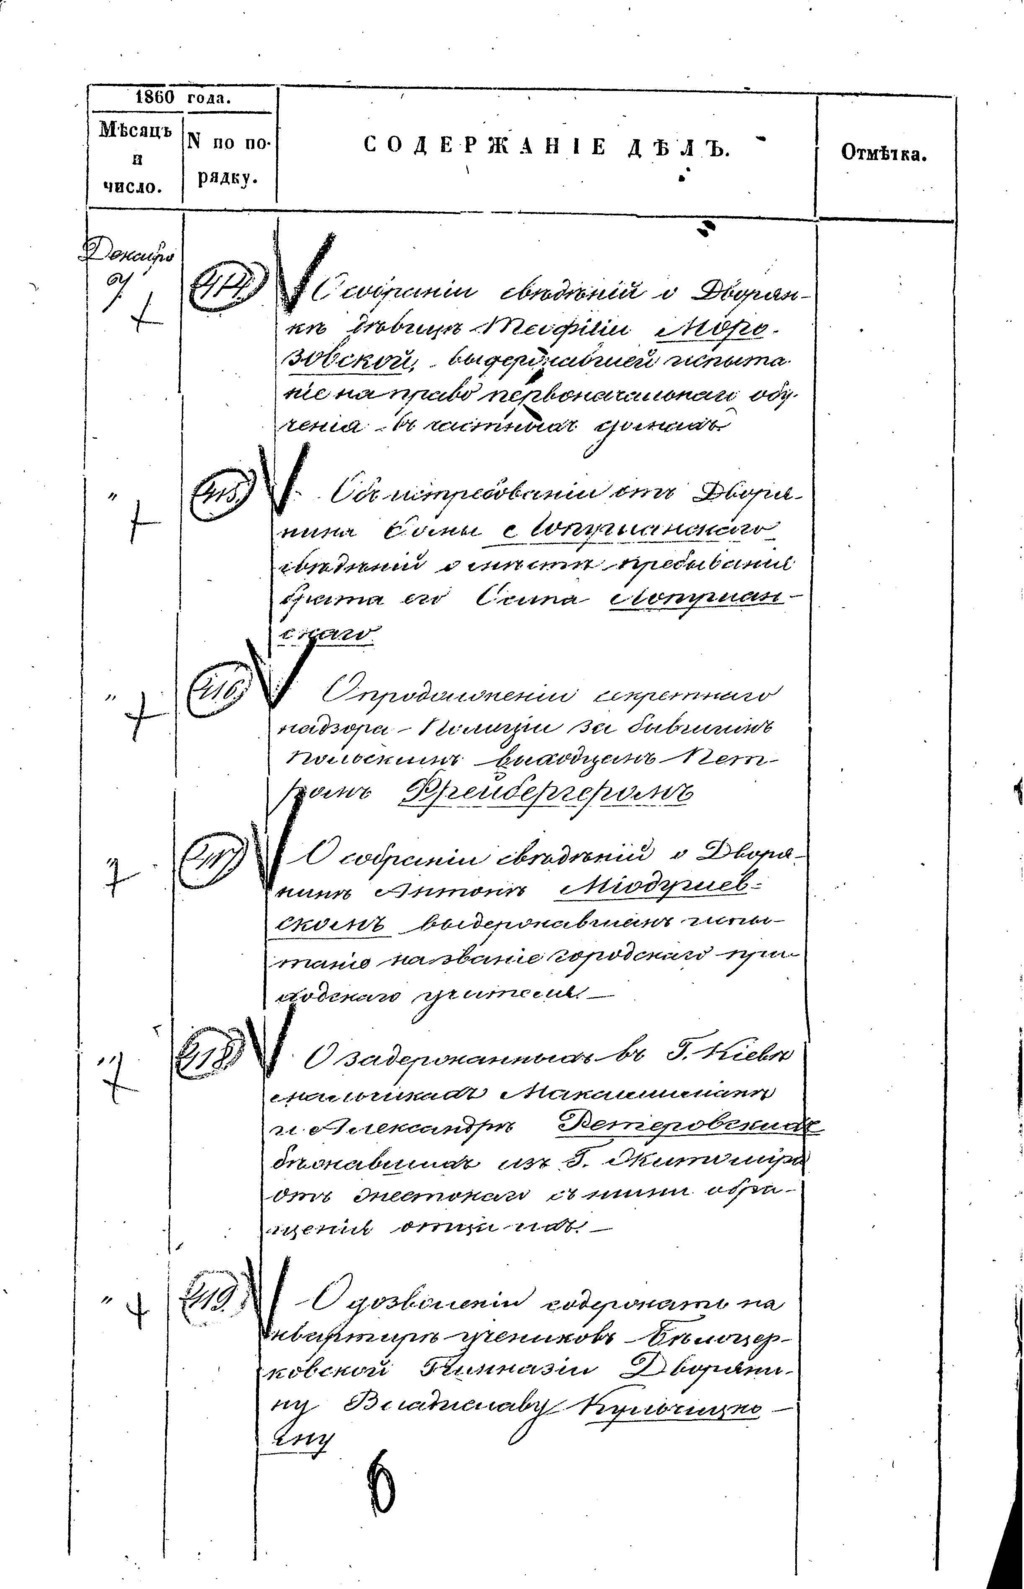 1860 года.
Мѣсяцъ и число.
N по порядку.
СОДЕРЖАНІЕ ДѢЛЪ.
Отмѣтка.
Декабро
7
414
О собраніи свѣдѣній о Дворян-
кѣ дѣвицѣ Теофиліи Моро-
зовской, выдержавшей испыта-
ніе на право первоначальнаго обу-
ченія въ частныхъ домахъ
" 415
Объ истребованіи отъ Дворя-
нина Лопушанскаго
свѣдѣній о мѣстѣ пребыванія
брата его Осипа Лопушан-
скаго
" 416
О продолженіи секретнаго
надзора Полиціи за бывшимъ
Польскимъ выходцемъ Пет-
ромъ Фрейбергеромъ
" 417
О собраніи свѣдѣній о Дворя-
нинѣ Антонѣ Міодушев-
скомъ выдержавшемъ испы-
таніе на званіе городскаго при-
ходскаго учителя
" 418
О задержанныхъ въ Г. Кіевѣ
мальчикахъ Максимиліанѣ
и Александрѣ Ветеровскихъ
бѣжавшихъ изъ Г. Житоміра
отъ жестокаго съ ними обра-
щенія отца ихъ.
" 419
О дозволеніи содержать на
квартирѣ учениковъ Бѣлоцер-
ковской Гимназіи Дворяни-
ну Владиславу Кульчицко-
му
6